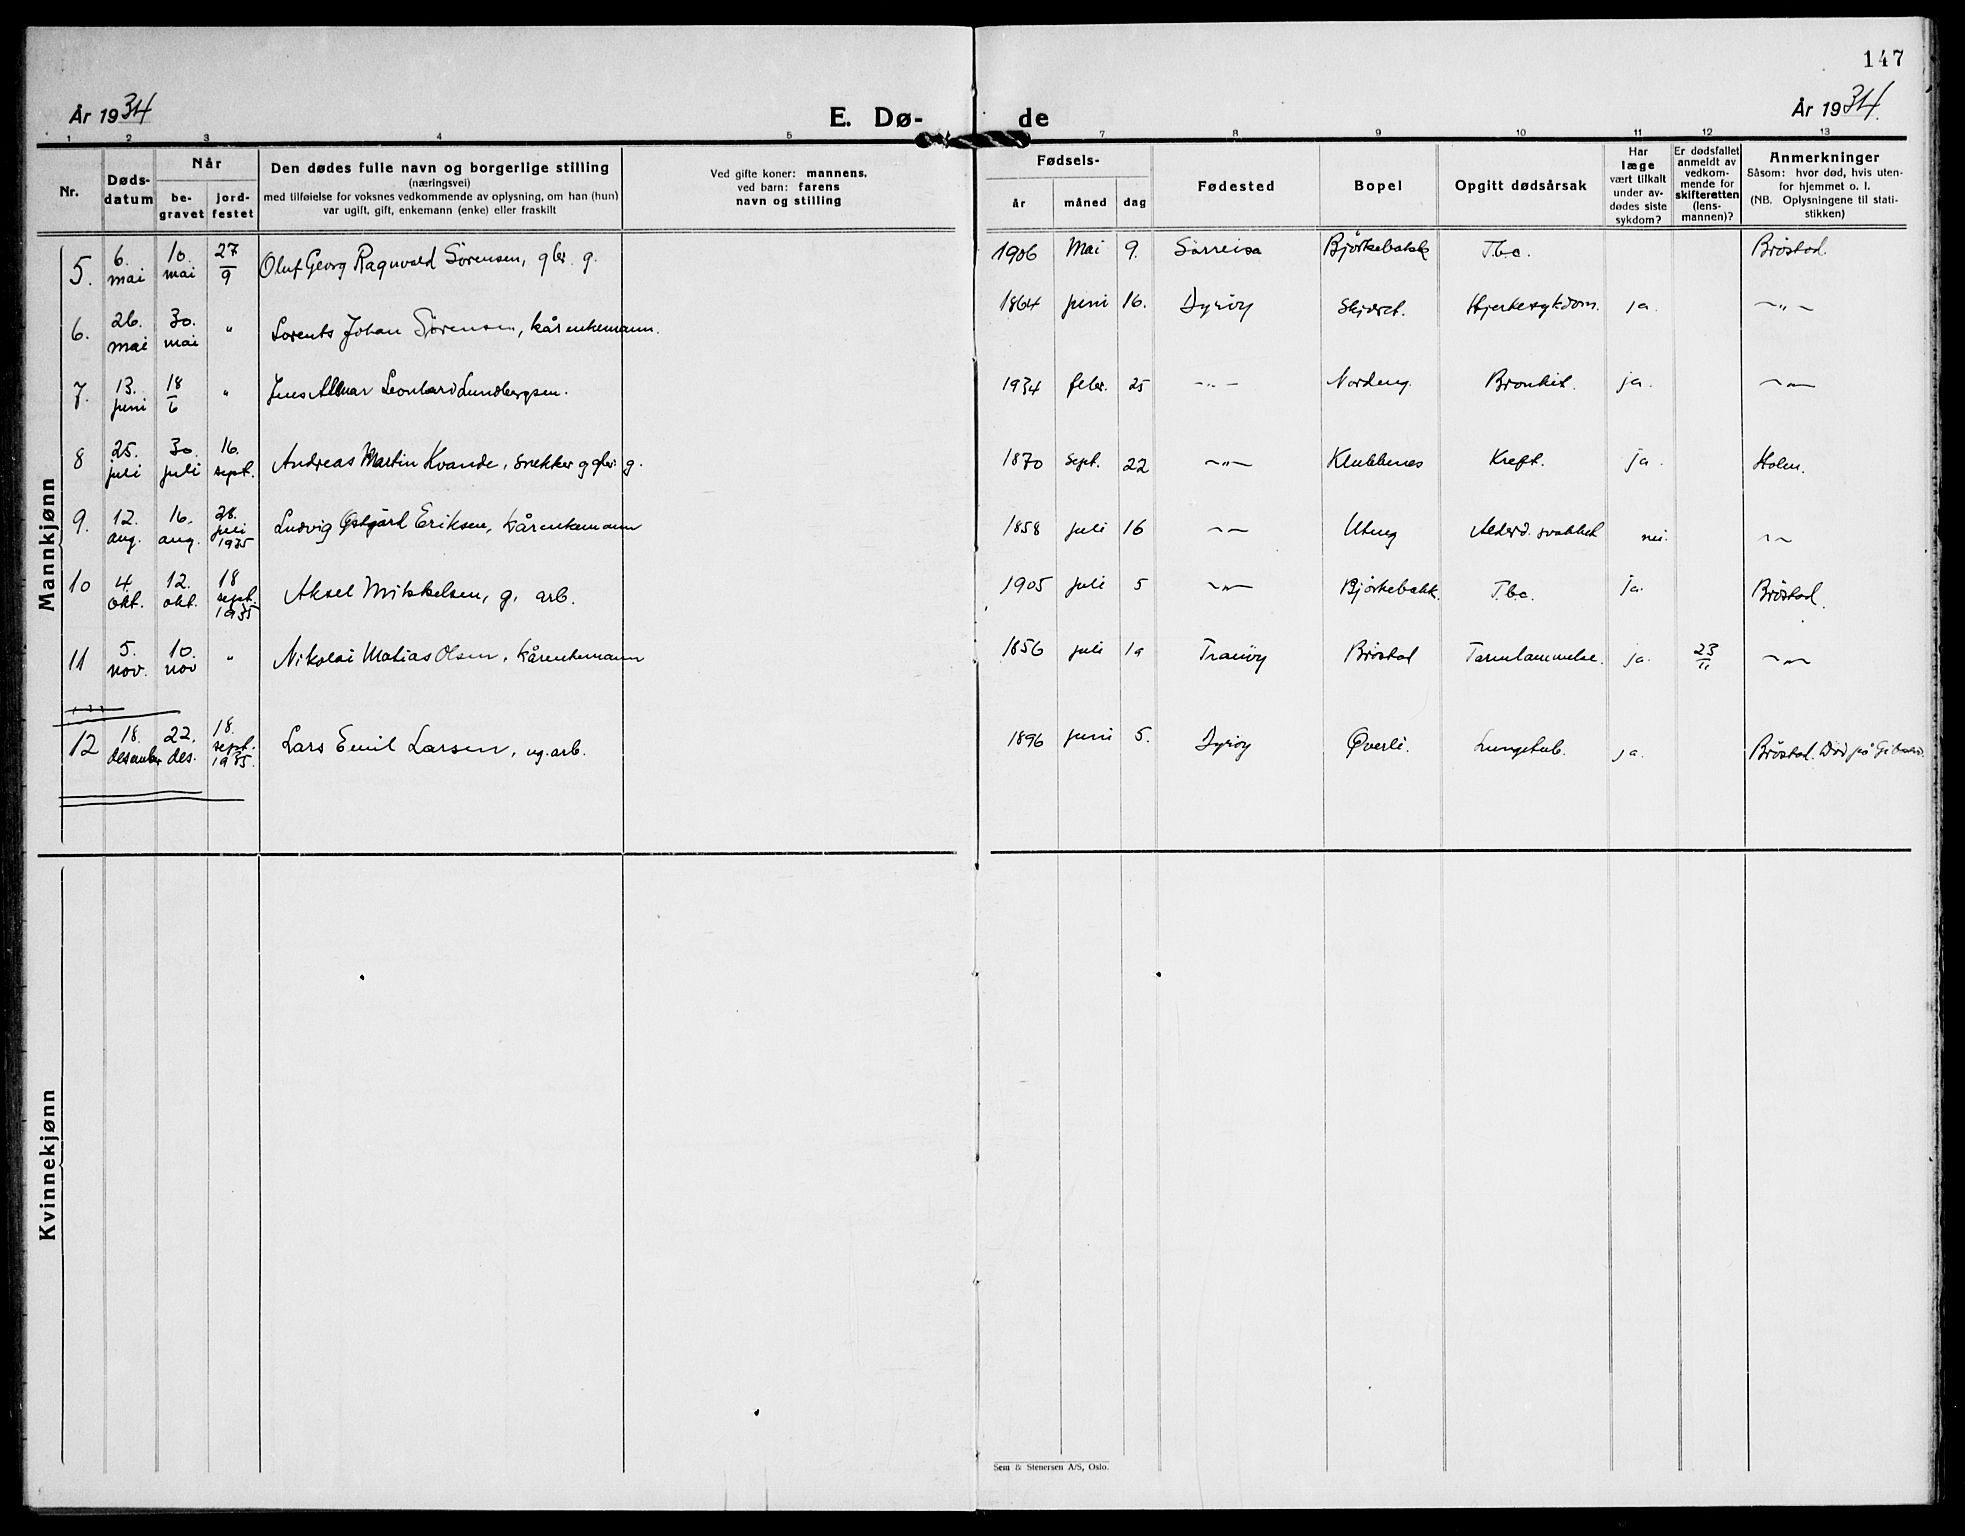 147
År 1934
E. Dø- de
År 1934.
1 2 3 4 5 7 8 9 10 11 12 13
Nr.
Døds-
datum
Når
be-
gravet
jord-
festet
Den dødes fulle navn og borgerlige stilling
(næringsvei)
med tilføielse for voksnes vedkommende av oplysning, om han (hun)
var ugift, gift, enkemann (enke) eller fraskilt
Ved gifte koner: mannens,
ved barn: farens
navn og stilling
Fødsels-
år måned dag
Fødested
Bopel
Opgitt dødsårsak
Har
læge
vært tilkalt
under av-
dødes siste
sykdom?
Er dødsfallet
anmeldt av
vedkom-
mende for
skifteretten
(lens-
mannen)?
Anmerkninger
Såsom: hvor død, hvis uten-
for hjemmet o. l.
(NB. Oplysningene til stati-
stikken)
Mannkjønn
5. 6. mai 10. mai 27/9 Oluf Georg Ragnvald Sørensen, gbr. g. 1906 Mai 9. Sørreisa Bjørkebakk T.b.c. Brøstad.
6. 26. mai 30. mai " Lorents Johan Sørensen, kårenkemann. 1864 juni 16. Dyrøy Skjæret. Hjertesykdom. ja. -"-
7. 13. juni 18/6 " Jens Leonhard Lundbergsen. 1934 febr. 25 -"- Nordeng. Bronkit. ja. -"-
8 25. juli 30. juli 16. sept. Andreas Martin Kvande, snekker og gbr. g. 1870 Sept. 22 -"- Klubbenes Kreft. ja. Holm.
9. 12. aug. 16. aug. 28. juli 1935 Ludvig Østgård Eriksen, kårenkemann 1858 juli 16 -"- Uteng Alderd. svakhet nei. -"-
10 4. okt. 12. okt. 18 sept. 1935 Aksel Mikkelsen, g. arb. 1905 juli 5 -"- Bjørkebakk. T.b.c. ja. Brøstad.
11 5. nov. 10. nov " Nikolai Matias Olsen, kårenkemann 1856 juli 19 Tranøy Brøstad Tarmlammelse. ja. 23/11 -"-
12 18. desember 22. des. 18. sept. 1935. Lars Emil Larsen, ug. arb. 1896 juni 5. Dyrøy Øverli. Lungetub. ja. Brøstad. Død på Gibostad.
Kvinnekjønn
Sem & Stenersen A/S, Oslo.